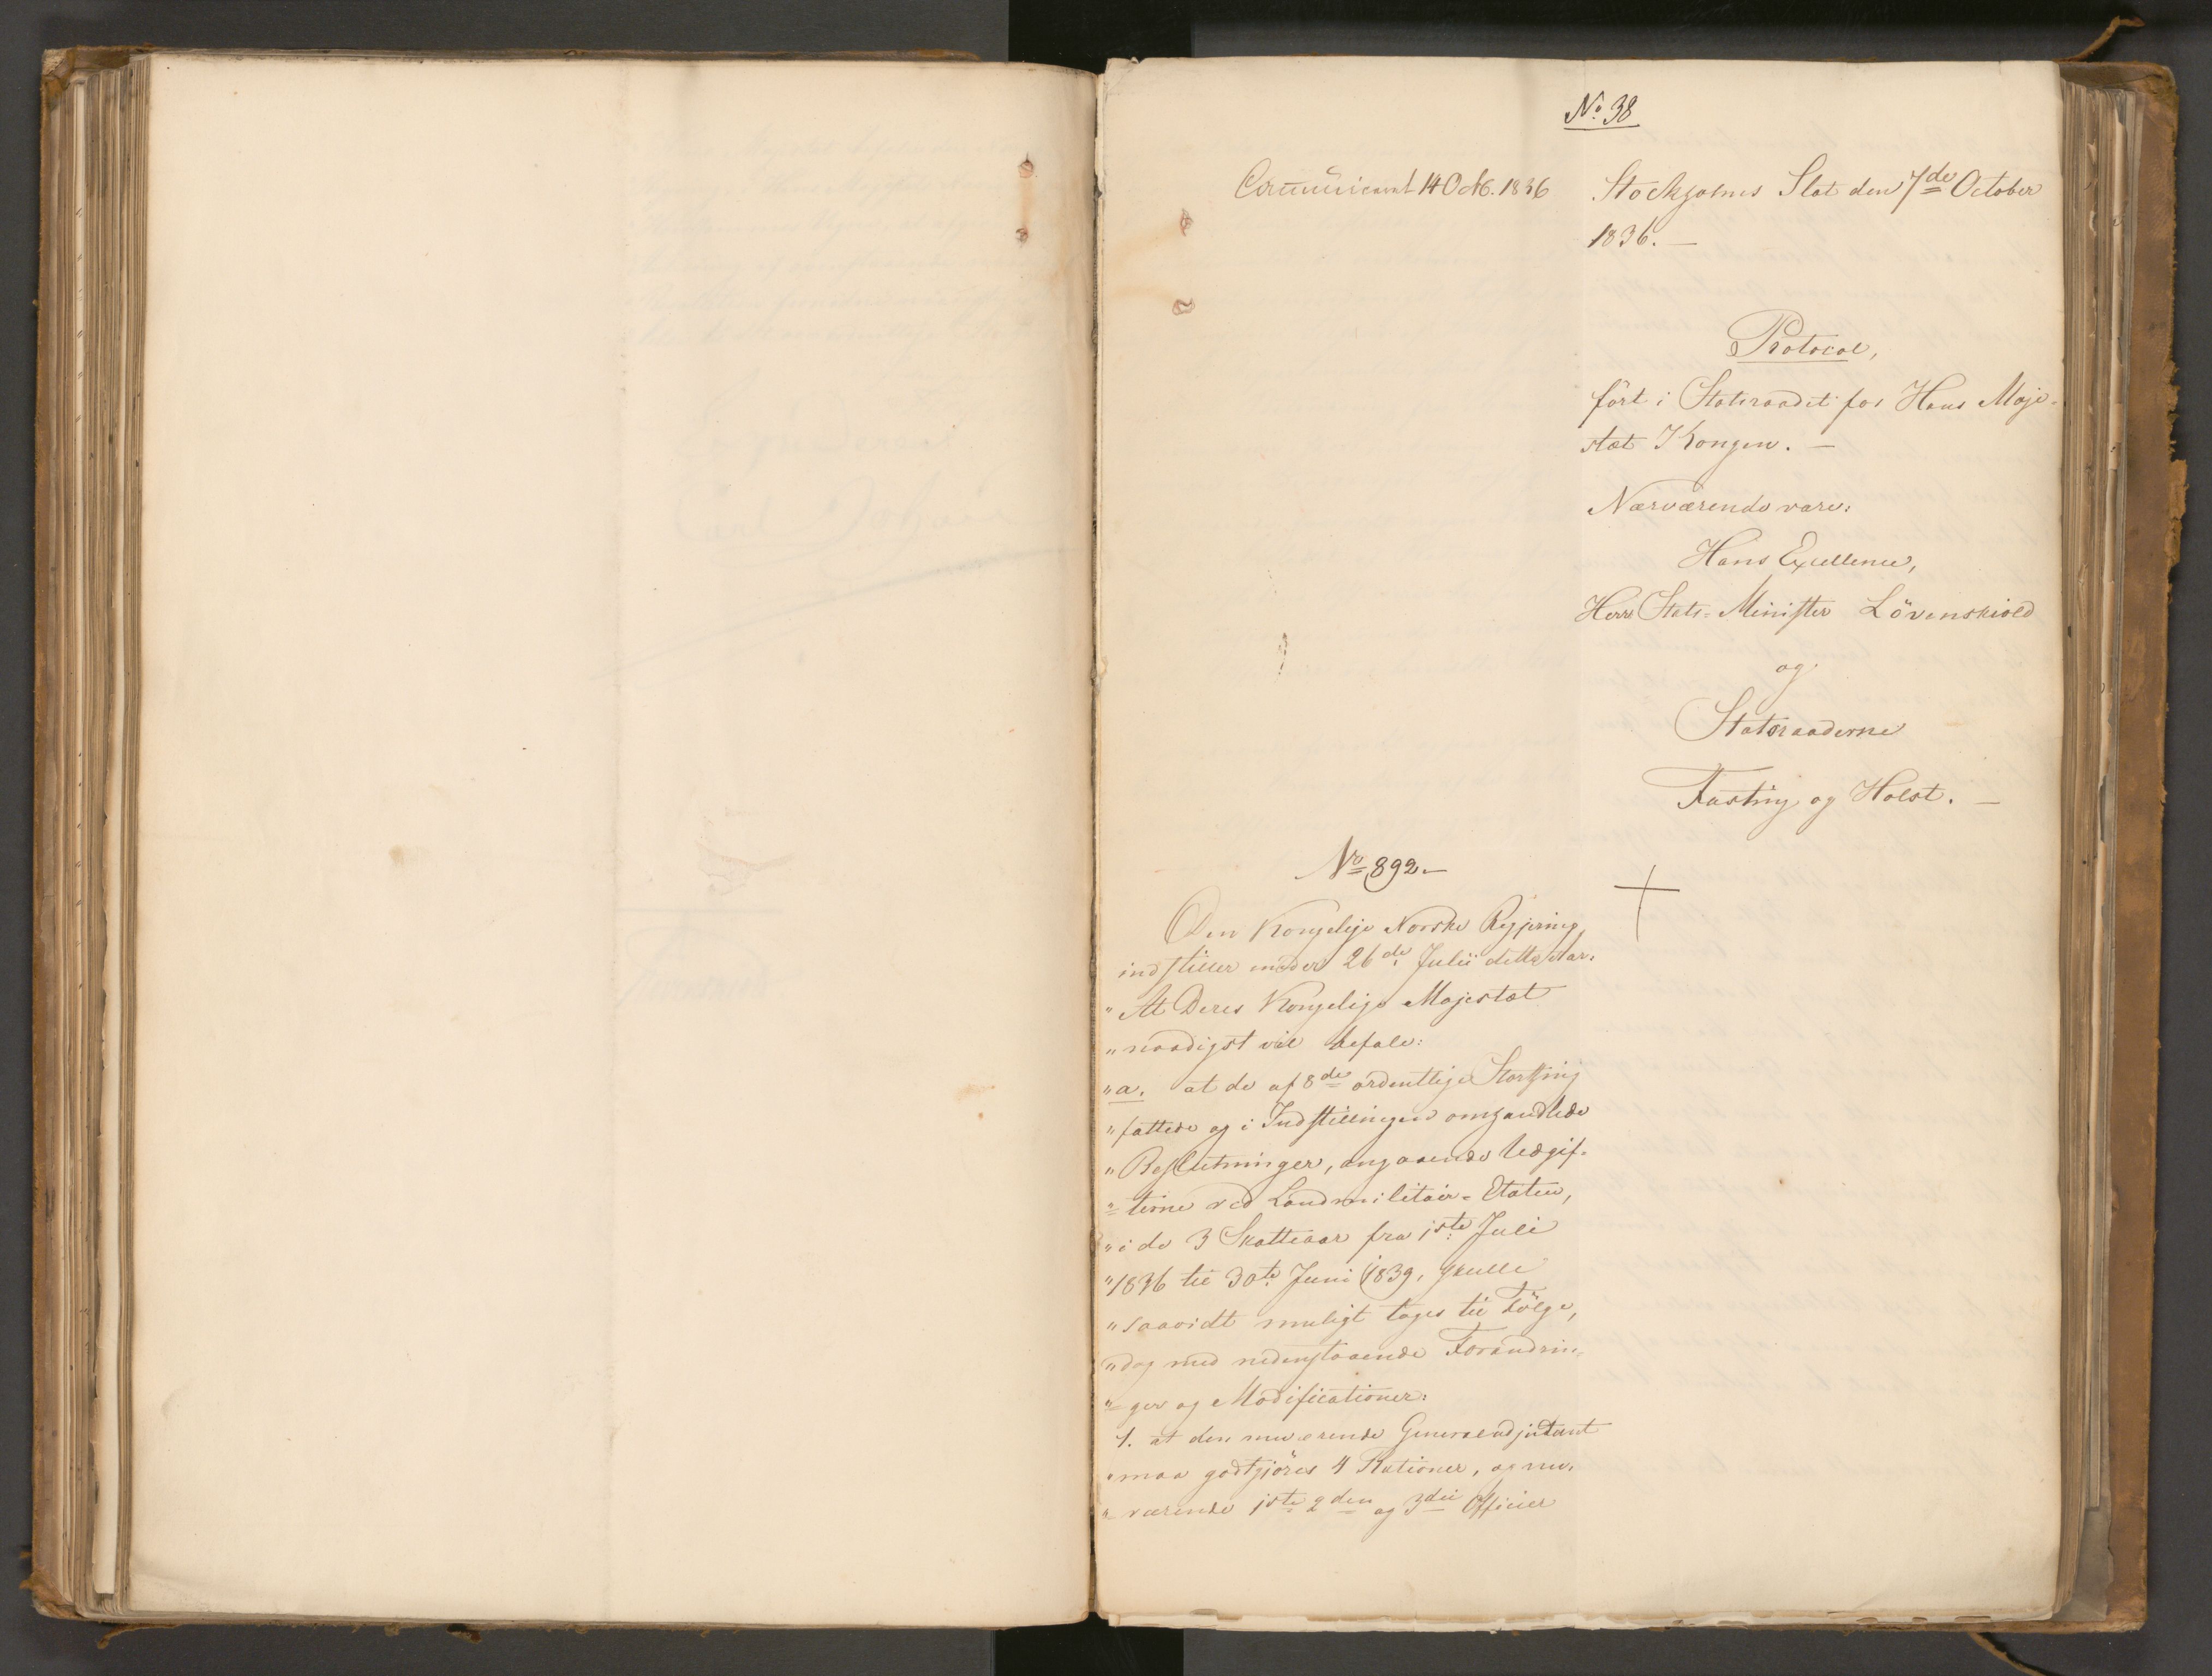 No 38
Communiceret 14 Octb. 1836
Stockholms Slot den 7de October
1836. —
Protocol,
ført i Statsraadet for Hans Maje-
stæt Kongen. —
Nærværende vare:
Hans Excellence,
Herr Stats-Minister Lövenskiold
og
Statsraaderne
Fasting og Holst. —
No 892 —
Den Kongelige Norske Regjering
indstiller under 26de Julii dette Aar:
"At Deres Kongelige Majestæt
"naadigst vil befale:
"a. at de af 8de ordentlige Storthing
"fattede og i Indstillingen omhandlede
"Beslutninger, angaaende Udgif-
"terne ved Landmilitair-Etaten,
"i de 3 Skatteaar fra 1ste Juli
"1836 til 30te Juni 1839, skulle
"saavidt muligt tages til Følge,
"dog med nedenstaaende Forandrin-
"ger og Modificationer:
1. at den nuværende Generaladjutant
"maa godtgjöres 4 Rationer, og nu-
"værende 1ste 2den og 3die Officier